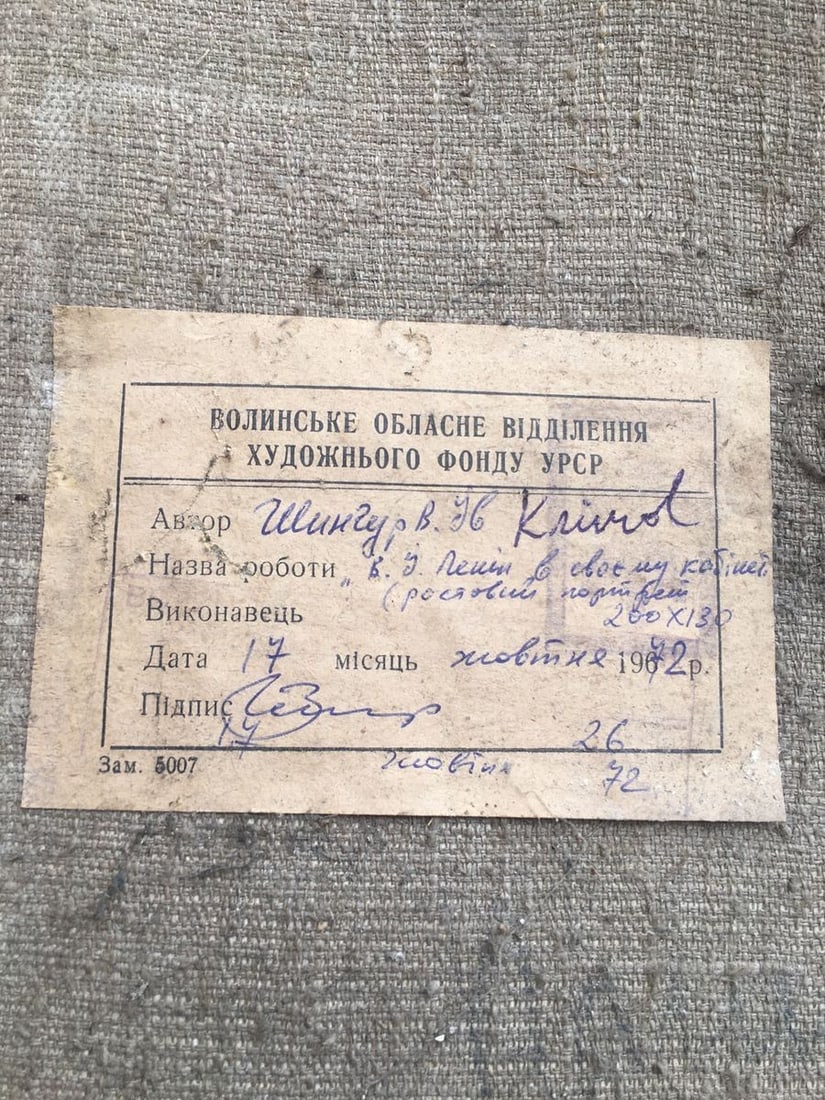 ВОЛИНСЬКЕ ОБЛАСНЕ ВІДДІЛЕННЯ
ХУДОЖНЬОГО ФОНДУ УРСР
Автор Шингур В. Ів
Назва роботи „В. І. Ленін в своєму кабінеті
(ростовий портрет
Виконавець 200Х130
Дата 17 місяць жовтня 1972р.
Підпис
17 26
Зам. 5007 жовтня 72